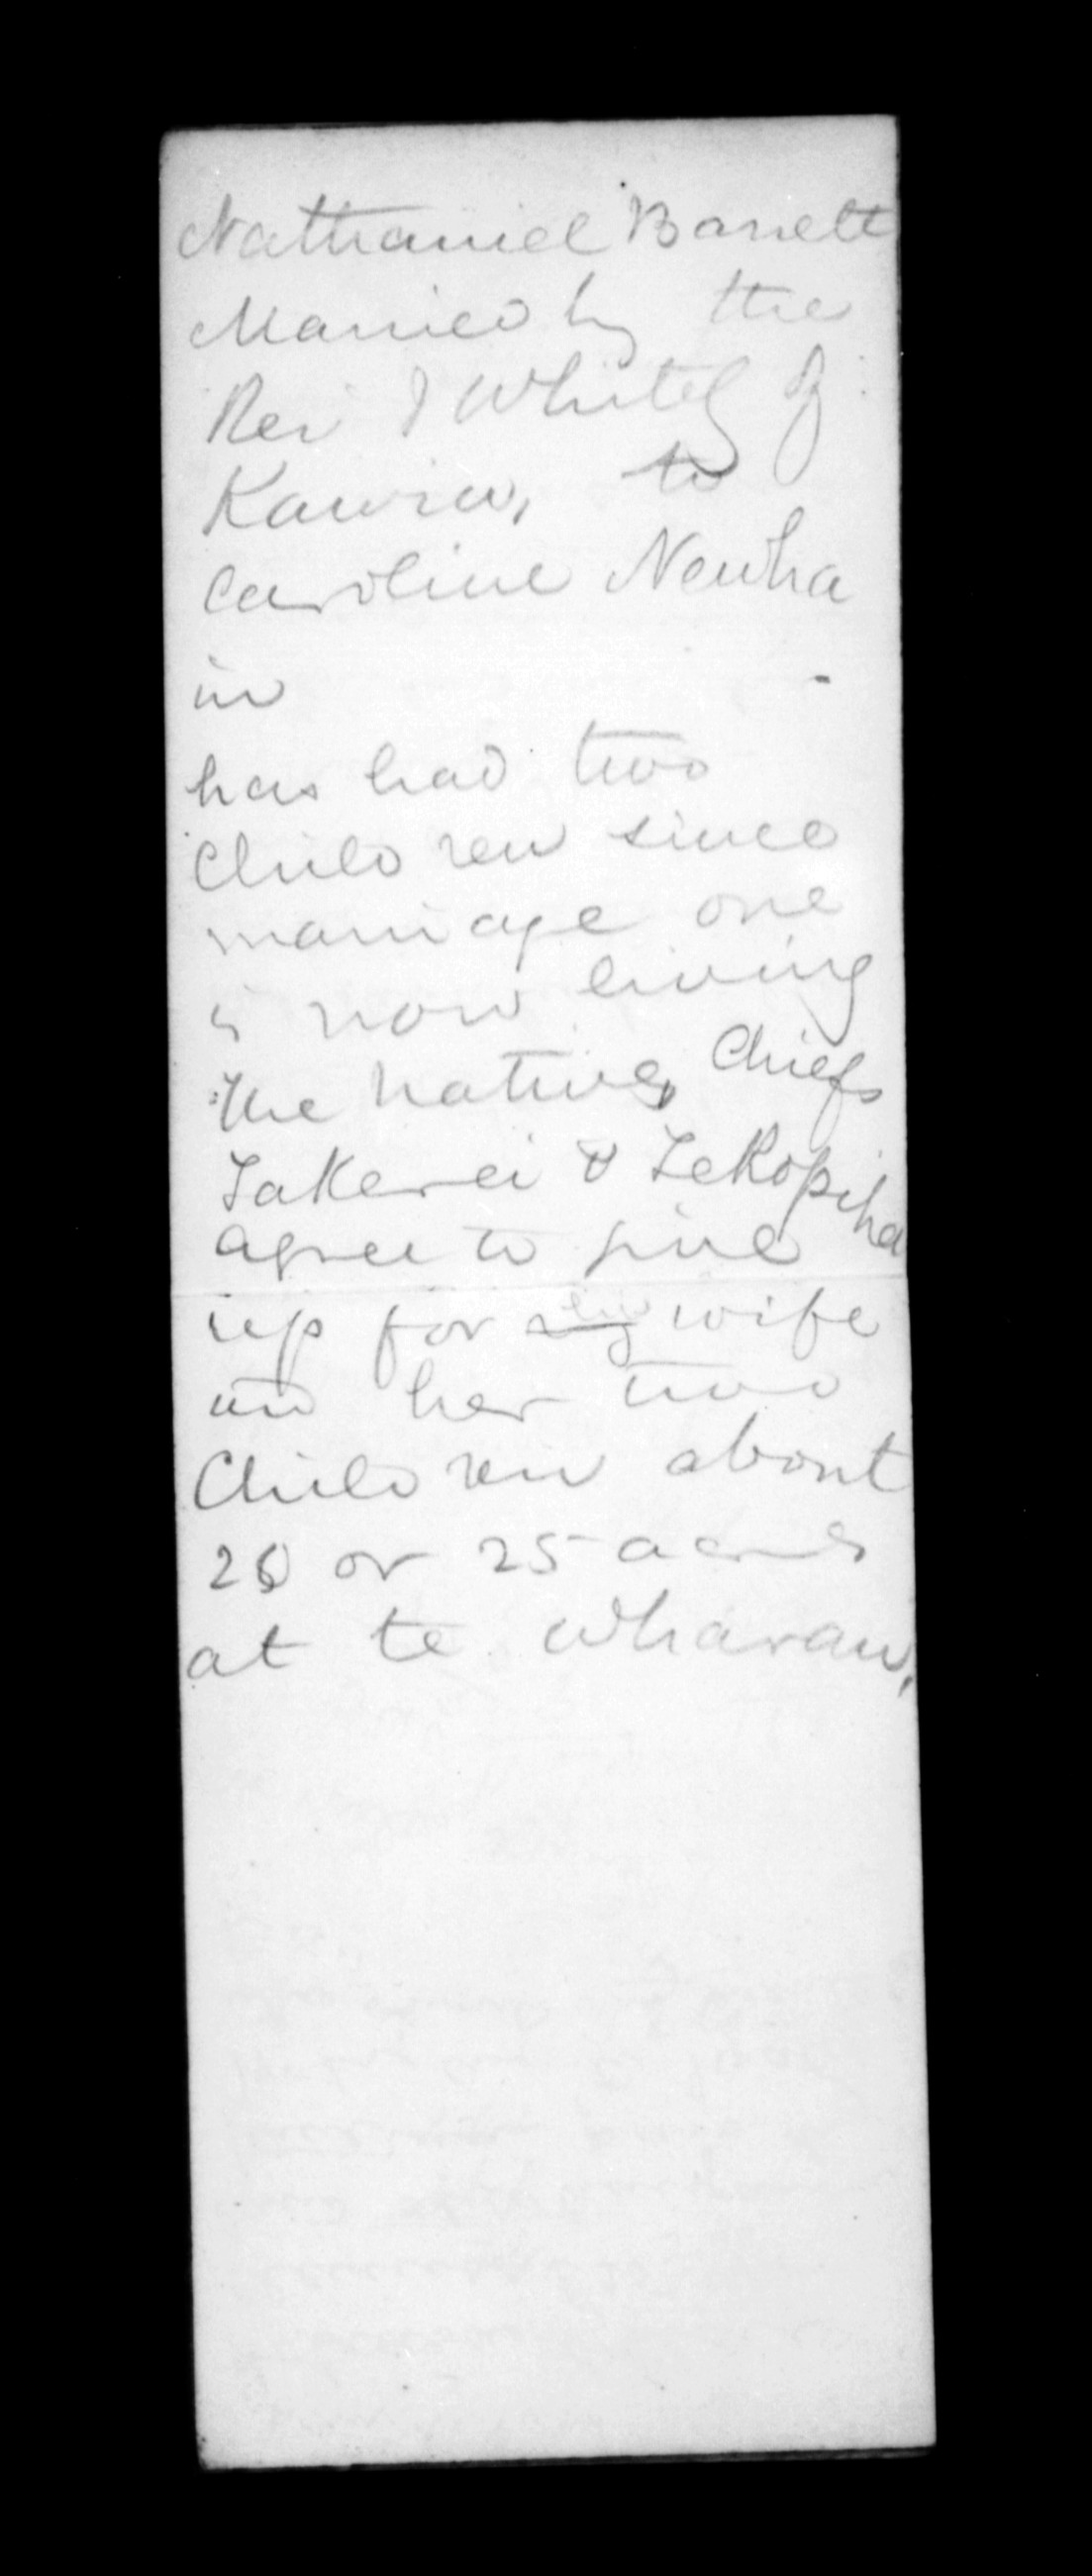 Nathaniel Barrett
Married by the
Rev J Whitely of
Kawia, to
Caroline Newha
in
has had two
Children since
marriage one
is now living
The native, Chiefs
Takerei & Te Kopiha
agree to give
up for his wife
and her two
Children about
20 or 25 acres
at te Wharau.